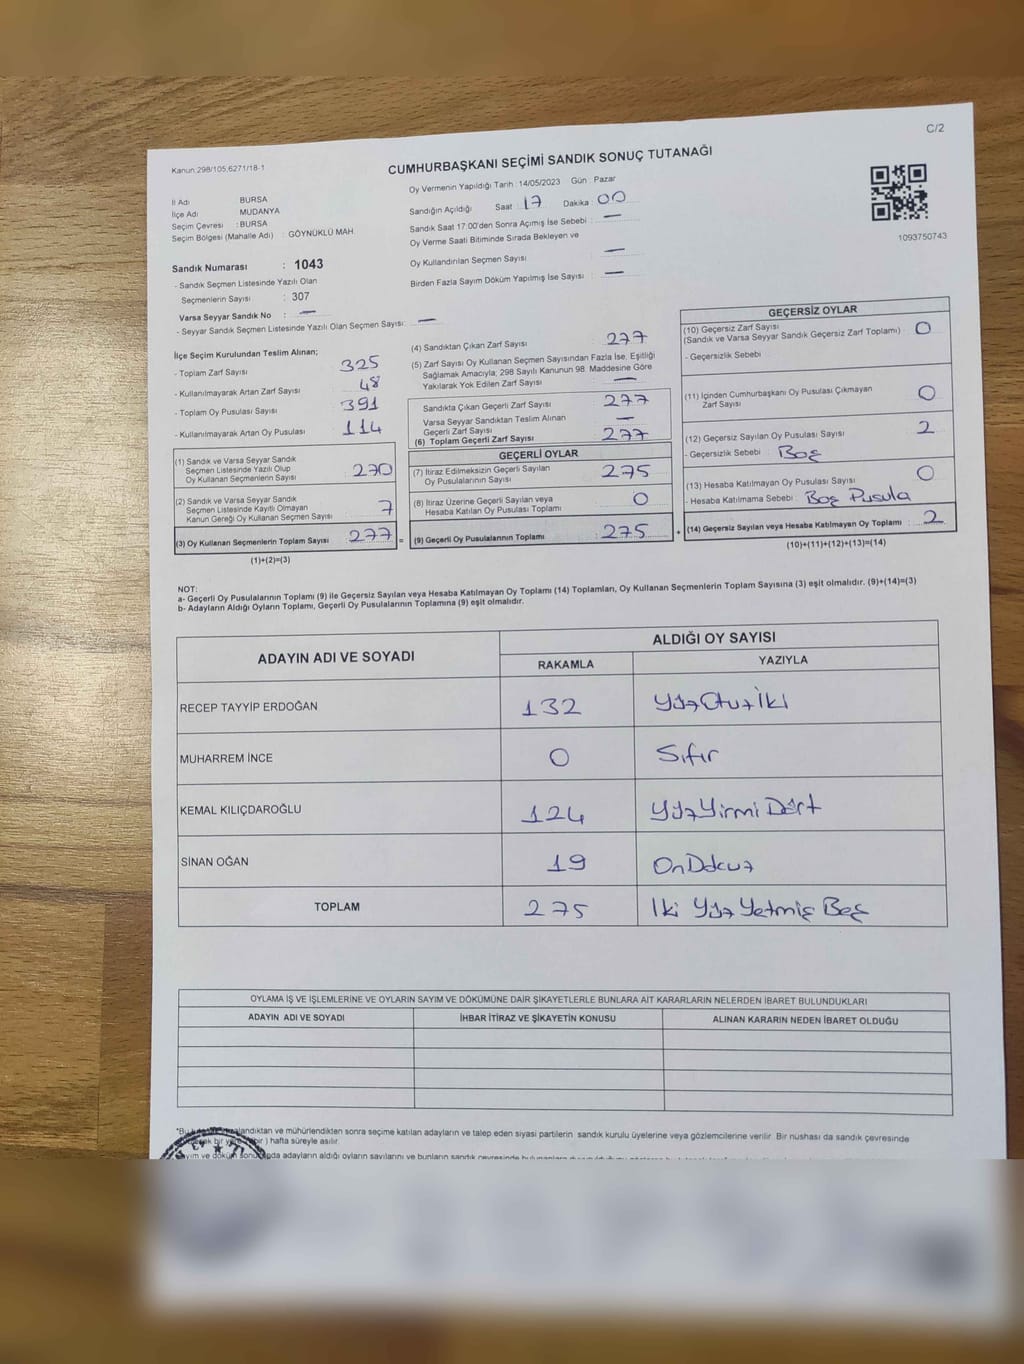 C/2
Kanun:298/105;6271/18-1
CUMHURBAŞKANI SEÇİMİ SANDIK SONUÇ TUTANAĞI
İl Adı BURSA
İlçe Adı MUDANYA
Seçim Çevresi : BURSA
Seçim Bölgesi (Mahalle Adı) : GÖYNÜKLÜ MAH.
Oy Vermenin Yapıldığı Tarih : 14/05/2023 Gün Pazar
Sandığın Açıldığı Saat 17 Dakika 00
Sandık Saat 17:00'den Sonra Açımış İse Sebebi : —
Oy Verme Saati Bitiminde Sırada Bekleyen ve
Oy Kullandırılan Seçmen Sayısı —
Birden Fazla Sayım Döküm Yapılmış İse Sayısı : —
1093750743
Sandık Numarası : 1043
- Sandık Seçmen Listesinde Yazılı Olan
Seçmenlerin Sayısı : 307
Varsa Seyyar Sandık No : —
- Seyyar Sandık Seçmen Listesinde Yazılı Olan Seçmen Sayısı: —
İlçe Seçim Kurulundan Teslim Alınan;
- Toplam Zarf Sayısı 325
- Kullanılmayarak Artan Zarf Sayısı 48
- Toplam Oy Pusulası Sayısı 391
- Kullanılmayarak Artan Oy Pusulası 114
(1) Sandık ve Varsa Seyyar Sandık
Seçmen Listesinde Yazılı Olup
Oy Kullanan Seçmenlerin Sayısı 270
(2) Sandık ve Varsa Seyyar Sandık
Seçmen Listesinde Kayıtlı Olmayan
Kanun Gereği Oy Kullanan Seçmen Sayısı 7
(3) Oy Kullanan Seçmenlerin Toplam Sayısı 277
(1)+(2)=(3)
=
(4) Sandıktan Çıkan Zarf Sayısı 277
(5) Zarf Sayısı Oy Kullanan Seçmen Sayısından Fazla İse, Eşitliği
Sağlamak Amacıyla; 298 Sayılı Kanunun 98. Maddesine Göre
Yakılarak Yok Edilen Zarf Sayısı —
Sandıkta Çıkan Geçerli Zarf Sayısı 277
Varsa Seyyar Sandıktan Teslim Alınan
Geçerli Zarf Sayısı —
(6) Toplam Geçerli Zarf Sayısı 277
GEÇERLİ OYLAR
(7) İtiraz Edilmeksizin Geçerli Sayılan
Oy Pusulalarının Sayısı 275
(8) İtiraz Üzerine Geçerli Sayılan veya
Hesaba Katılan Oy Pusulası Toplamı 0
(9) Geçerli Oy Pusulalarının Toplamı : 275
+
GEÇERSİZ OYLAR
(10) Geçersiz Zarf Sayısı 0
(Sandık ve Varsa Seyyar Sandık Geçersiz Zarf Toplamı)
- Geçersizlik Sebebi
(11) İçinden Cumhurbaşkanı Oy Pusulası Çıkmayan
Zarf Sayısı 0
(12) Geçersiz Sayılan Oy Pusulası Sayısı 2
- Geçersizlik Sebebi : Boş
(13) Hesaba Katılmayan Oy Pusulası Sayısı 0
- Hesaba Katılmama Sebebi : Boş Pusula
(14) Geçersiz Sayılan veya Hesaba Katılmayan Oy Toplamı : 2
(10)+(11)+(12)+(13)=(14)
NOT:
a- Geçerli Oy Pusulalarının Toplamı (9) ile Geçersiz Sayılan veya Hesaba Katılmayan Oy Toplamı (14) Toplamları, Oy Kullanan Seçmenlerin Toplam Sayısına (3) eşit olmalıdır. (9)+(14)=(3)
b- Adayların Aldığı Oyların Toplamı, Geçerli Oy Pusulalarının Toplamına (9) eşit olmalıdır.
ADAYIN ADI VE SOYADI
ALDIĞI OY SAYISI
RAKAMLA YAZIYLA
RECEP TAYYİP ERDOĞAN 132 YüzOtuzİki
MUHARREM İNCE 0 Sıfır
KEMAL KILIÇDAROĞLU 124 YüzYirmiDört
SİNAN OĞAN 19 OnDokuz
TOPLAM 275 İki Yüz Yetmiş Beş
OYLAMA İŞ VE İŞLEMLERİNE VE OYLARIN SAYIM VE DÖKÜMÜNE DAİR ŞİKAYETLERLE BUNLARA AİT KARARLARIN NELERDEN İBARET BULUNDUKLARI
ADAYIN ADI VE SOYADI İHBAR İTİRAZ VE ŞİKAYETİN KONUSU ALINAN KARARIN NEDEN İBARET OLDUĞU
andıktan ve mühürlendikten sonra seçime katılan adayların ve talep eden siyasi partilerin sandık kurulu üyelerine veya gözlemcilerine verilir. Bir nüshası da sandık çevresinde
hafta süreyle asılır.
ve döküm adayların aldığı oyların sayılarını ve bunların sandık çevresinde